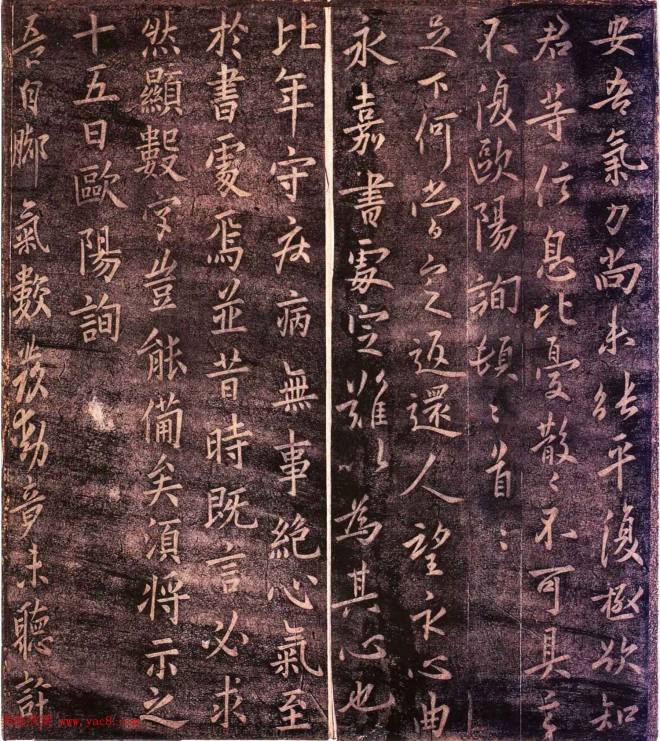 安吾氣力尚未能平復極欲知
君等信息比憂散〻不可具言
不復歐陽詢頓〻首〻
足下何當定返還人望永心曲
永嘉書處定難以為其心也
比年守疾病無事絕心氣至
於書處焉並昔時既言必求
然顯數字豈能備矣須將示之
十五日歐陽詢
吾自腳氣數發動音未聽許
www.yac8.com